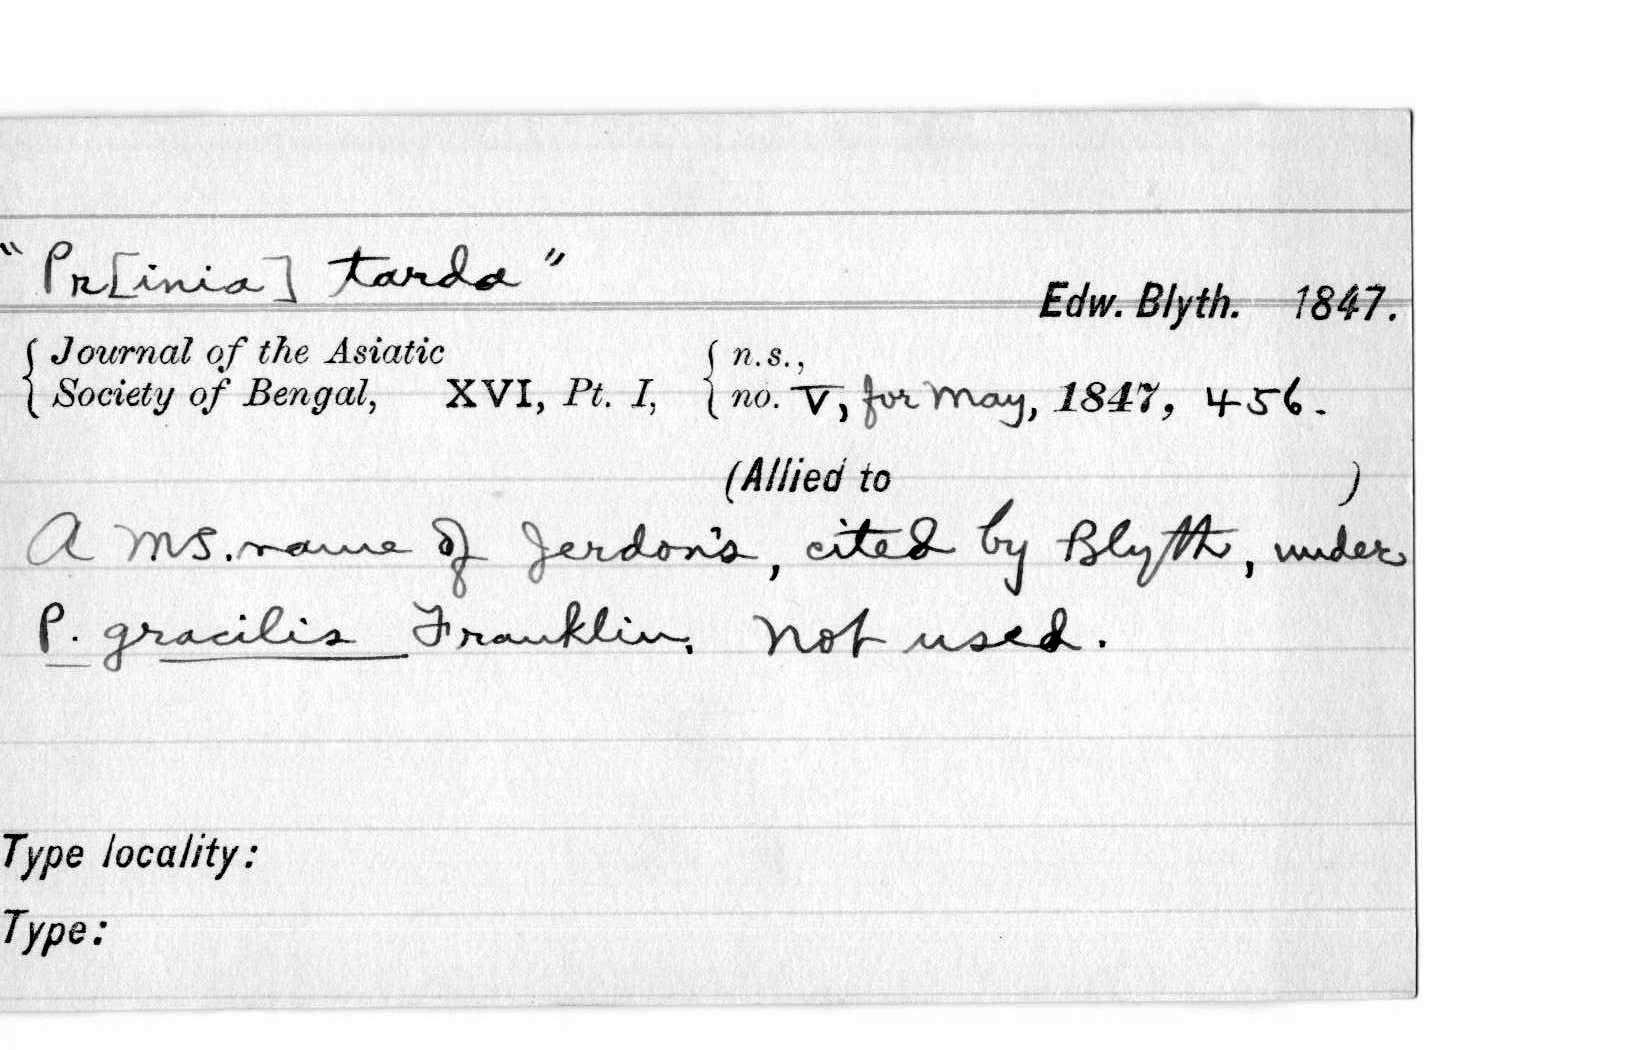 "Pr[inia] tarda"
Edw. Blyth. 1847.
{ Journal of the Asiatic { n.s.,
{ Society of Bengal, XVI, Pt. I, { no. V, for May, 1847, 456.
(Allied to )
A MS. name of Jerdon's, cited by Blyth, under
P. gracilis Franklin. Not used.
Type locality:
Type: